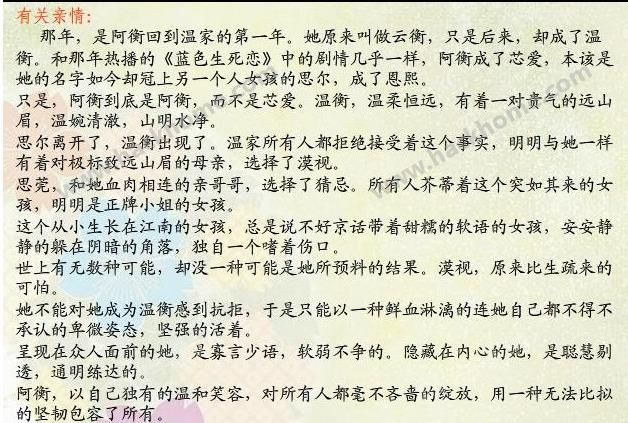 有关亲情：
那年，是阿衡回到温家的第一年。她原来叫做云衡，只是后来，却成了温
衡。和那年热播的《蓝色生死恋》中的剧情几乎一样，阿衡成了芯爱，本该是
她的名字如今却冠上另一个人女孩的思尔，成了恩熙。
只是，阿衡到底是阿衡，而不是芯爱。温衡，温柔恒远，有着一对贵气的远山
眉，温婉清澈，山明水净。
思尔离开了，温衡出现了。温家所有人都拒绝接受着这个事实，明明与她一样
有着对极标致远山眉的母亲，选择了漠视。
思莞，和她血肉相连的亲哥哥，选择了猜忌。所有人芥蒂着这个突如其来的女
孩，明明是正牌小姐的女孩。
这个从小生长在江南的女孩，总是说不好京话带着甜糯的软语的女孩，安安静
静的躲在阴暗的角落，独自一个嗜着伤口。
世上有无数种可能，却没一种可能是她所预料的结果。漠视，原来比生疏来的
可怕。
她不能对她成为温衡感到抗拒，于是只能以一种鲜血淋漓的连她自己都不得不
承认的卑微姿态，坚强的活着。
呈现在众人面前的她，是寡言少语，软弱不争的。隐藏在内心的她，是聪慧剔
透，通明练达的。
阿衡，以自己独有的温和笑容，对所有人都毫不吝啬的绽放，用一种无法比拟
的坚韧包容了所有。